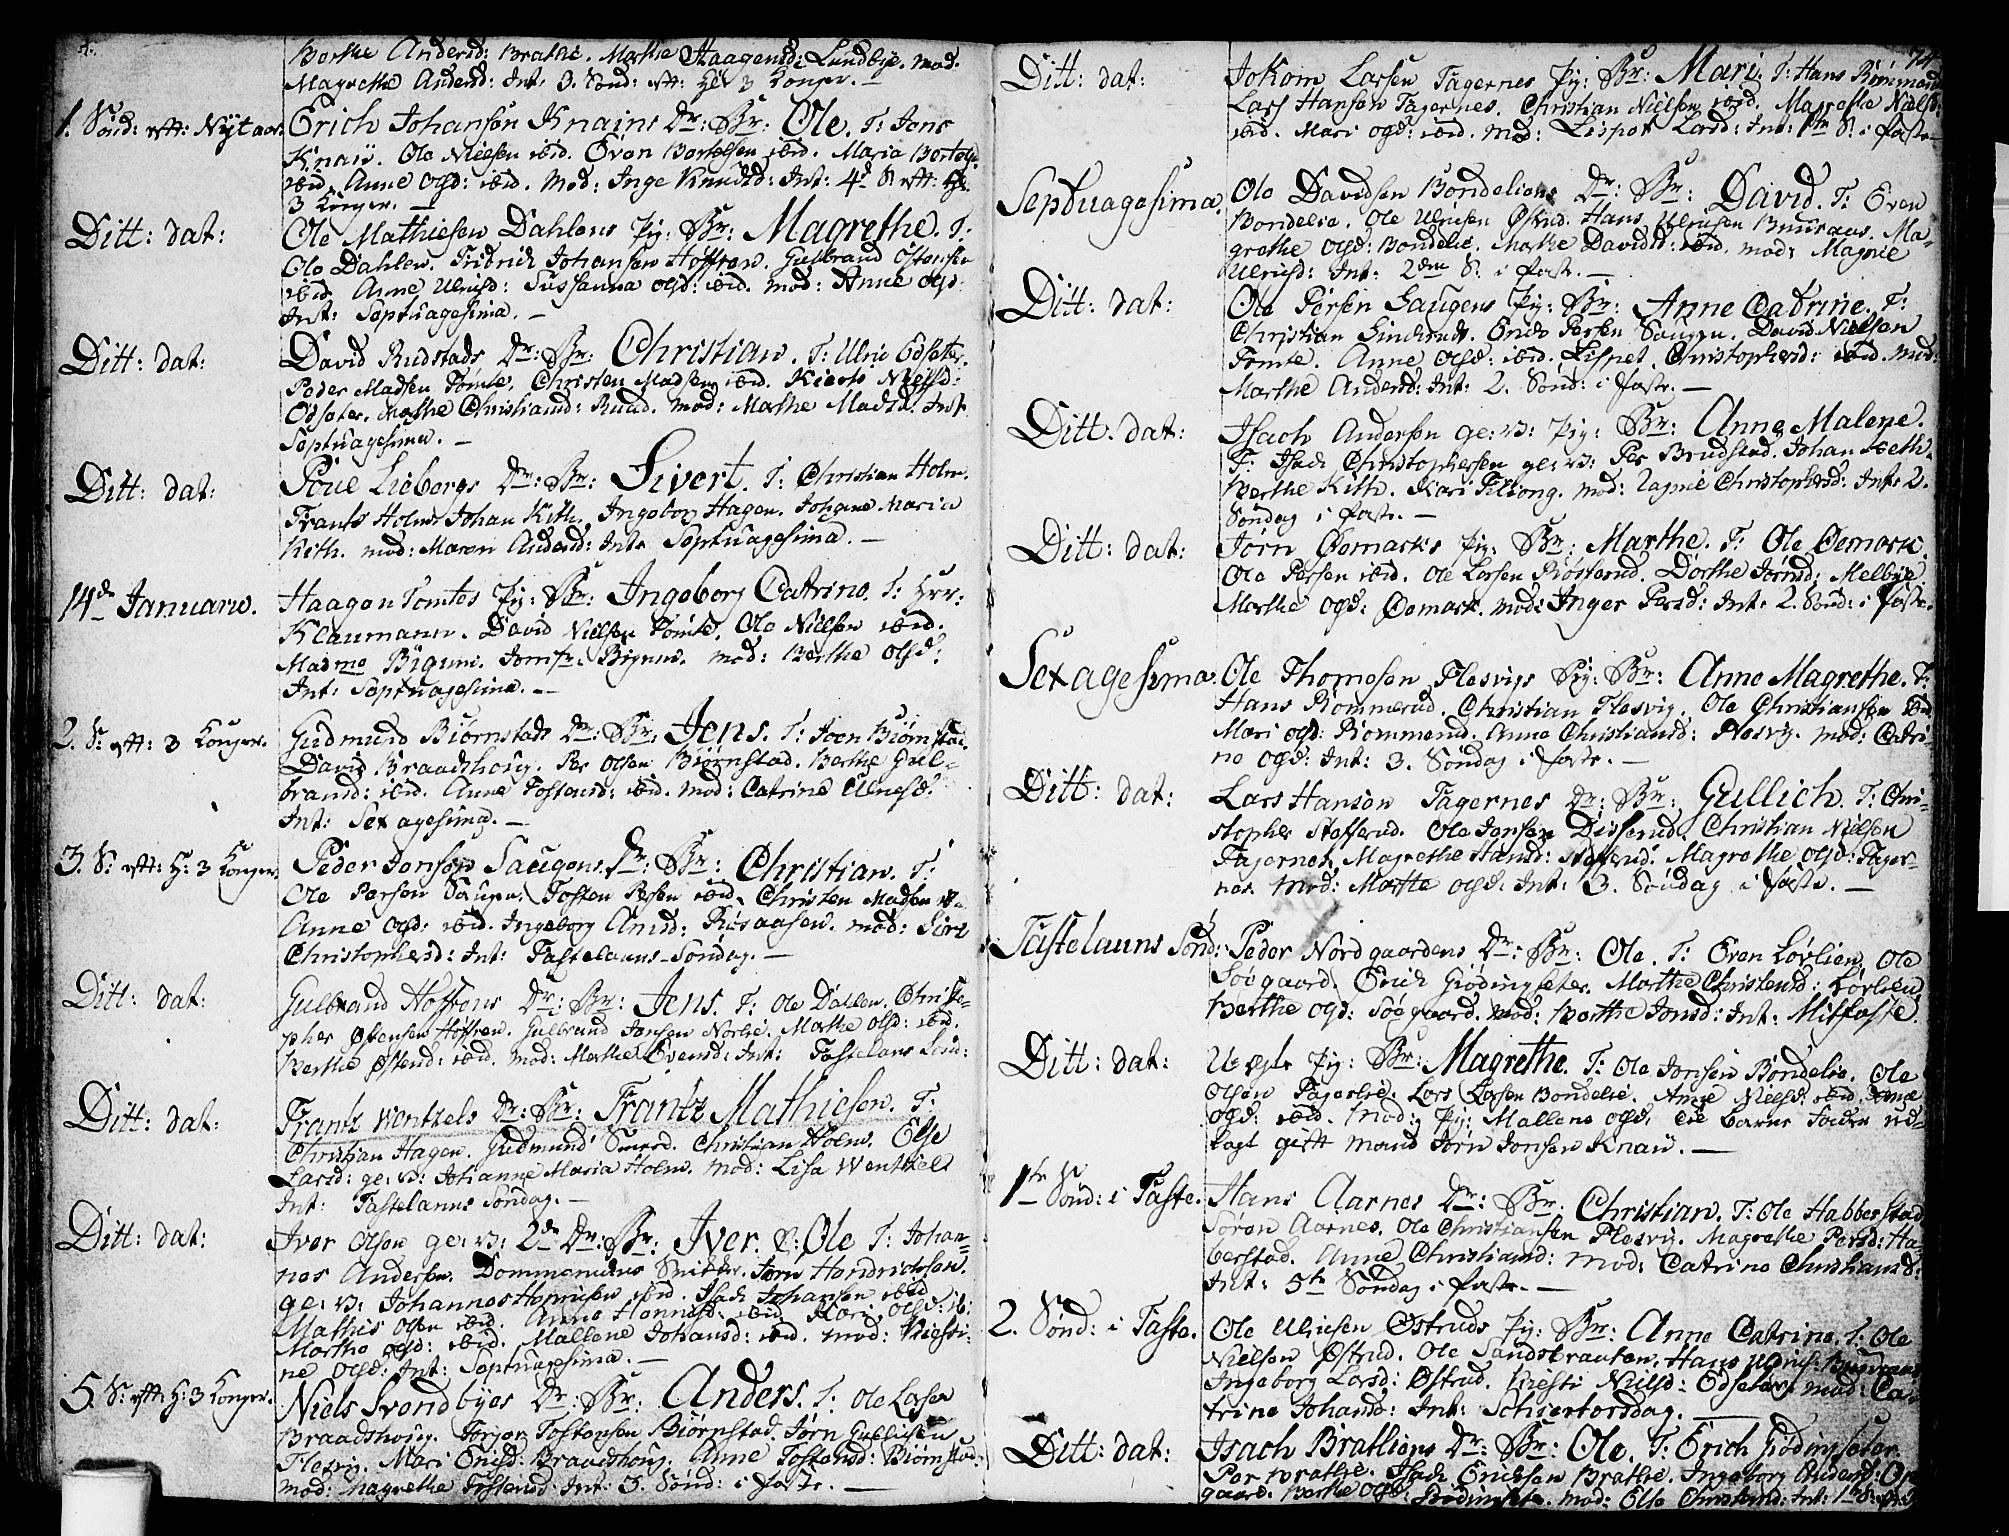 Berthe Andersd: Brathe. Marthe Haagensd: Lundbye. mod:
Magrethe Andersd: Int: 3. Sønd: eft: H: 3 Konger. —
1. Sønd: eft: Nyt aar. Erich Johansøn Knains Dr: Br: Ole. T: Jens
Knain. Ole Nielsen ibid. Even Bertelsen ibid. Maria Bertels:
ibid. Anne Olsd: ibid. mod: Inge Knudsd: Int: 4d S. eft: H:
3 Konger. —
Ditt: dat: Ole Mathiesen Dahlens Pig: Br: Magrethe. T:
Ole Dahlen. Fridrich Johansen Hoffren. Gulbrand Østensen
ibid. Anne Ulrichsd: Sussanna Olsd: ibid. mod: Anne Olsd:
Int: Septuagesima. —
Ditt: dat: David Rudstads Dr: Br: Christian. T: Ulric Edseter.
Peder Madsen Tomte. Christen Madsen ibid. Kiersti Nielsd:
Edseter. Marthe Christiansd: Ruud. mod: Marthe Madsd: Int:
Septuagesima. —
Ditt: dat: Poue Liebergs Dr: Br: Sivert. T: Christian Holm.
Frants Holm. Johan Kith. Ingebor Hagen. Johanne Maria
Kith. mod: Maren Andersd: Int: Septuagesima. —
14de Januarii. Haagen Tomtes Pig: Br: Ingeborg Catrine. T: Hr:
Klaumann. David Nielsen Tomte. Ole Nielsen ibid.
Madme Bigum. Jomfr: Bigum. mod: Berthe Olsd:
Int: Septuagesima. —
2. S: eft: 3 Konger. Gudmund Biørnstads Dr: Br: Jens. T: Joen Biørnstad.
David Braadshoug. Per Olsen Biørnstad. Berthe Gul-
bransd: ibid. Anne Tostensd: ibid. mod: Catrine Ulrichsd:
Int: Sexagesima. —
3. S: eft: H: 3 Konger. Peder Jonsøn Saugens Dr: Br: Christian. T:
Ole Persen Saugen. Tosten Persen ibid. Christen Madsen
Anne Olsd: ibid. Ingeborg Arnesd: Riisaasen. mod: Siri
Christophersd: Int: Fastelauns-Søndag. —
Ditt: dat: Gulbrand Hoffrens Dr: Br: Jens. T: Ole Dahlen. Christo-
pher Østensen Hoffren. Gulbrand Jonsen Norbie. Marthe Olsd: ibid.
Berthe Østensd: ibid. mod: Marthe Evensd: Int: Fastelauns Sønd:
Ditt: dat: Frantz Wentzels Dr: Br: Frantz Mathiesen. T:
Christian Hagen. Gudmund Smeed. Christian Holm. Else
Larsd: ge: v: Johanne Maria Holm. mod: Lisa Wentzels
Int: Fastelauns Søndag. —
Ditt: dat: Iver Olsen ge: v: 2de Dr: Br: Iver. &: Ole T: Johan-
nes Andersen. Jørn Hendrichsen.
ge: v: Johannes Henrichsen ibid. Isach Johansen ibid.
Mathis Olsen ibid. Anne Hennisd: ibid. Kari Olsd: ib:
Marthe Olsd: ibid. Mallene Johansd: ibid. mod: Kiersti-
ne Olsd: Int: Septuagesima. —
5. S: eft: H: 3 Konger. Niels Svendbyes Dr: Br: Anders. T: Ole Larsen
Braadshoug. Torger Tostensen Biørnstad. Jørn Gulliksen
Flesvig. Mari Erichsd: Braadshoug. Anne Tostensd: Biørnstad.
mod: Magrethe Tostensd: Int: 3. Sønd: i faste. —
74
Ditt: dat: Jokom Larsen Tagernes Pig: Br: Mari. T: Hans Rømmerud
Lars Hansen Tagernes. Christian Nielsen ibid. Magrethe Nielsd:
ibid. Mari Olsd: ibid. mod: Lispet Larsd: Int: 1ste S: i faste —
Septuagesima. Ole Davidsen Bondeliens Dr: Br: David. T: Even
Bondelie. Ole Ulrichsen Østrud. Hans Ulrichsen Buuraas. Ma-
grethe Olsd: Bondelie. Marthe Davidsd: ibid. mod: Magnil
Ulrichsd: Int: 2den S: i faste. —
Ditt: dat: Ole Persen Saugens Pig: Br: Anne Catrine. T:
Christian Linderud. Erich Persen Saugen. David Nielsen
Tomte. Anne Olsd: ibid. Lispet Christophersd: ibid. mod:
Marthe Andersd: Int: 2. Sønd: i faste. —
Ditt: dat: Isach Andersøn ge: v: Pig: Br: Anne Malene.
T: Isach Christophersen ge: v: Per Brudstad. Johan Keth.
Berthe Kith. mod: Christophersd: Int: 2.
Søndag i faste. —
Ditt: dat: Jørn Øemarks Pig: Br: Marthe. T: Ole Øemark.
Ole Persen ibid. Ole Larsen Røsterud. Dorthe Jørnsd: Melbye.
Marthe Olsd: Øemark. mod: Inger Persd: Int: 2. Sønd: i faste.
Sexagesima. Ole Thomesen Flesvigs Pig: Br: Anne Magrethe. T:
Hans Rømmerud. Christian Flesvig. Ole Christiansen ibid
Mari Olsd: Rømmerud. Anne Christiansd: Flesvig. mod: Catri-
ne Olsd: Int: 3. Søndag i faste. —
Ditt: dat: Lars Hansøn Tagernes Dr: Br: Gullich. T: Chri-
stopher Stefferud. Ole Jonsen Disserud. Christian Nielsen
Tagernes. Magrethe Hansd: Stefferud. Magrethe Olsd: Tager-
nes. mod: Marthe Olsd: Int: 3. Søndag i faste. —
Fastelauns Sønd: Peder Nordgaardens Dr: Br: Ole. T: Even Løvlien. Ole
Søegaard. Erich Giødingseter. Marthe Christensd: Løvlien.
Berthe Olsd: Søegaard. mod: Berthe Jonsd: Int: Mitfaste.
Ditt: dat: Uægte Pig: Br: Magrethe. T: Ole Jonsen Bondelie. Ole
Olsen Fagerlie. Lars Larsen Bondelie. Anne Nielsd: ibid. Anne
Olsd: ibid. mod: Pig: Mallene Olsd: til barne fader ud-
lagt gift mand Jørn Jonsen Knain. —
1ste Sønd: i Faste. Hans Aarnes Dr: Br: Christian. T: Ole Habberstad
Søren Aarnes. Ole Christiansen Flesvig. Magrethe Persd: Ha-
berstad. Anne Christiansd: mod: Catrine Christiansd:
Int: 5te Søndag i faste. —
2. Sønd: i Faste. Ole Ulrichsen Østruds Pig: Br: Anne Catrine. T: Ole
Nielsen Østrud. Ole Sandsbraaten. Hans Ulrichs: Buuraas
Ingeborg Larsd: Østrud. Kiersti Nielsd: Edseter. mod: Ca-
trine Johansd: Int: Schiertorsdag. —
Ditt: dat: Isach Brathens Dr: Br: Ole. T: Erich Giødingseter
Per Brathe. Isach Erichsen Brathe. Ingeborg Andersd:
gaard. Berthe Olsd: Giødingseter. mod: Else Christensd: Int: 1ste S: